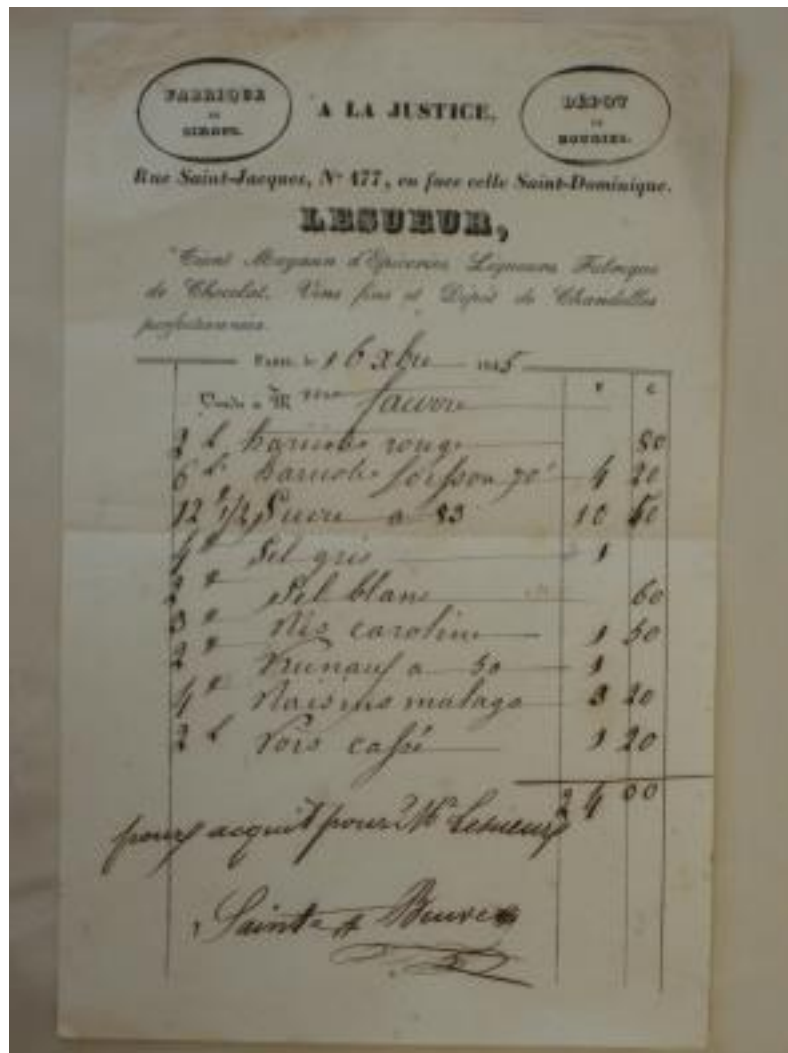 FABRIQUE
DE
SIROPS.
A LA JUSTICE.
DÉPOT
DE
BOUGIES.
Rue Saint-Jacques, N° 177, en face celle Saint-Dominique.
LESUEUR,
Tient Magasin d'Epiceries Liqueurs Fabrique
de Chocolat. Vins fins et Dépôt de Chandelles
perfectionnées.
Paris, le 16 Xbre 1845
Vendu à M me
F C
2 L haricots rouge 80
6 L haricots soisson 70 c 4 20
12 1/2 Sucre a 83 10
4 Sel gris 1
2 Sel blanc 60
3 Ris caroline 1 50
2 Pruneaux a 50 1
4 Raisins malaga 3 20
2 L Pois cassé 1 20
24 00
pour acquit pour Mr Lesueur
Sainte Beuve